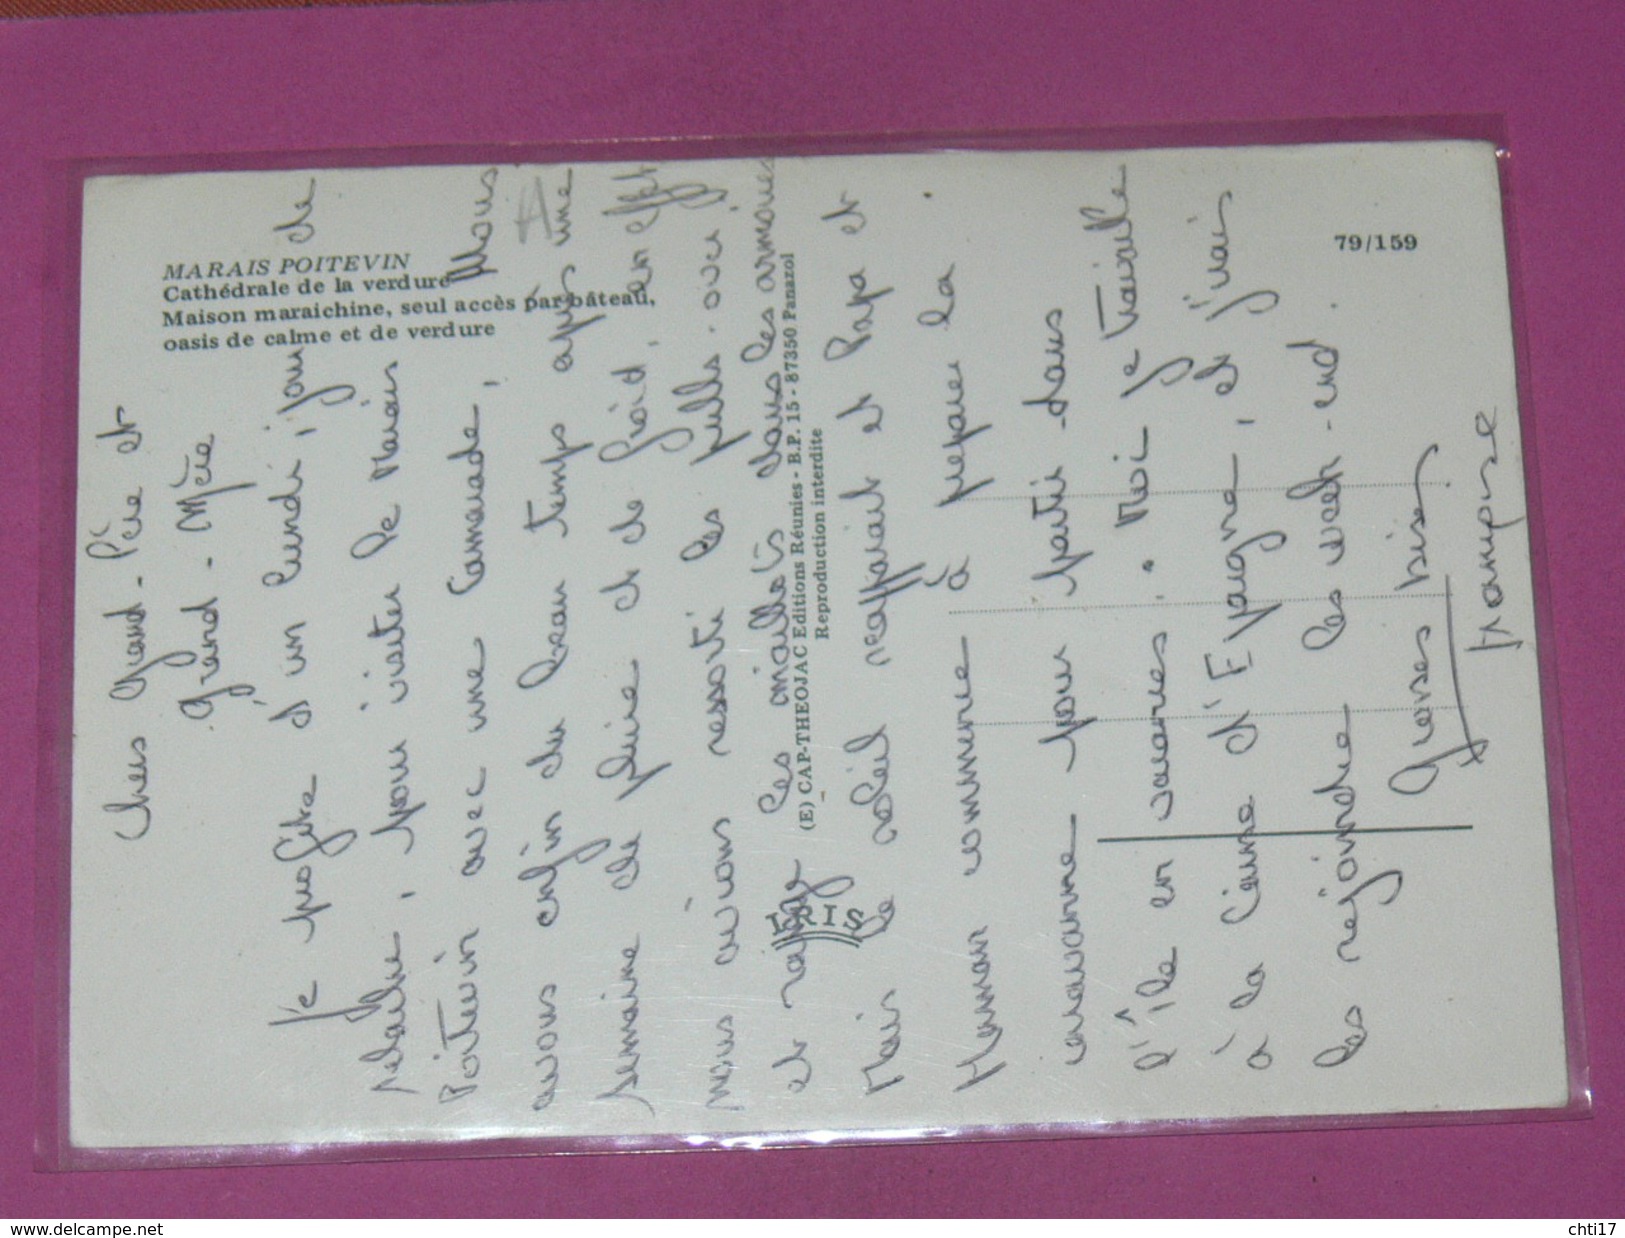 MARAIS POITEVIN
Cathédrale de la verdure
Maison maraichine, seul accès par bâteau,
oasis de calme et de verdure
79/159
(E) CAP-THEOJAC Editions Réunies - B.P. 15 - 87350 Panazol
Reproduction interdite
IRIS
Chers Grand-Père et
Grand-Mère
Je profite d'un lundi, jour de
relâche, pour visiter le Marais
Poitevin avec une camarade, Nous
avons enfin du beau temps après une
semaine de pluie et de froid, en effet
nous avions ressorti les pulls-over
et rangé les maillots dans les armoires
Mais le soleil réapparait et Papa et
Maman commence à préparer la
caravane pour partir dans
l'île en vacances. Moi je travaille
à la Cime d'Epargne, et j'irais
les rejoindre les week-end.
Grosses bises
Françoise
www.delcampe.net
chti17